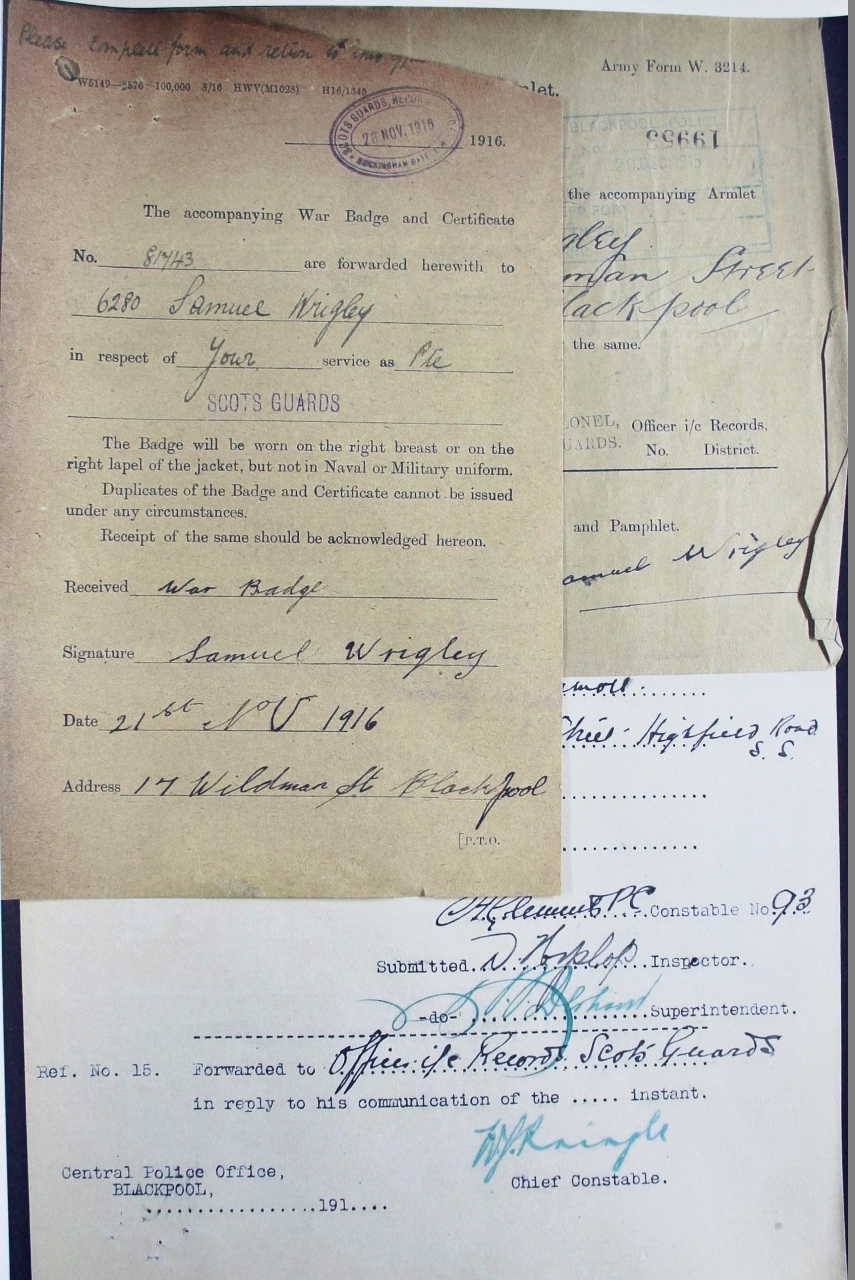 Please complete form and return to this
W5149—2576—100,000 8/16 HWV(M1028) H16/1345
SCOTS GUARDS, RECORD
20 NOV. 1916
BUCKINGHAM GATE
1916.
The accompanying War Badge and Certificate
No. 81743 are forwarded herewith to
6280 Samuel Wrigley
in respect of Your service as Pte
SCOTS GUARDS
The Badge will be worn on the right breast or on the
right lapel of the jacket, but not in Naval or Military uniform.
Duplicates of the Badge and Certificate cannot be issued
under any circumstances.
Receipt of the same should be acknowledged hereon.
Received War Badge
Signature Samuel Wrigley
Date 21st Nov 1916
Address 17 Wildman St Blackpool
[P.T.O.
Army Form W. 3214.
let.
BLACKPOOL POLICE
19955
the accompanying Armlet
gley
man Street
lackpool
the same.
ONEL, Officer i/c Records,
UARDS. No. District.
and Pamphlet.
amuel Wrigley
Highfield Road
S. S.
P.C. Constable No. 93
Submitted Inspector.
-do- Superintendent.
Ref. No. 15. Forwarded to Officer i/c Records Scots Guards
in reply to his communication of the ..... instant.
Chief Constable.
Central Police Office,
BLACKPOOL,
................191....